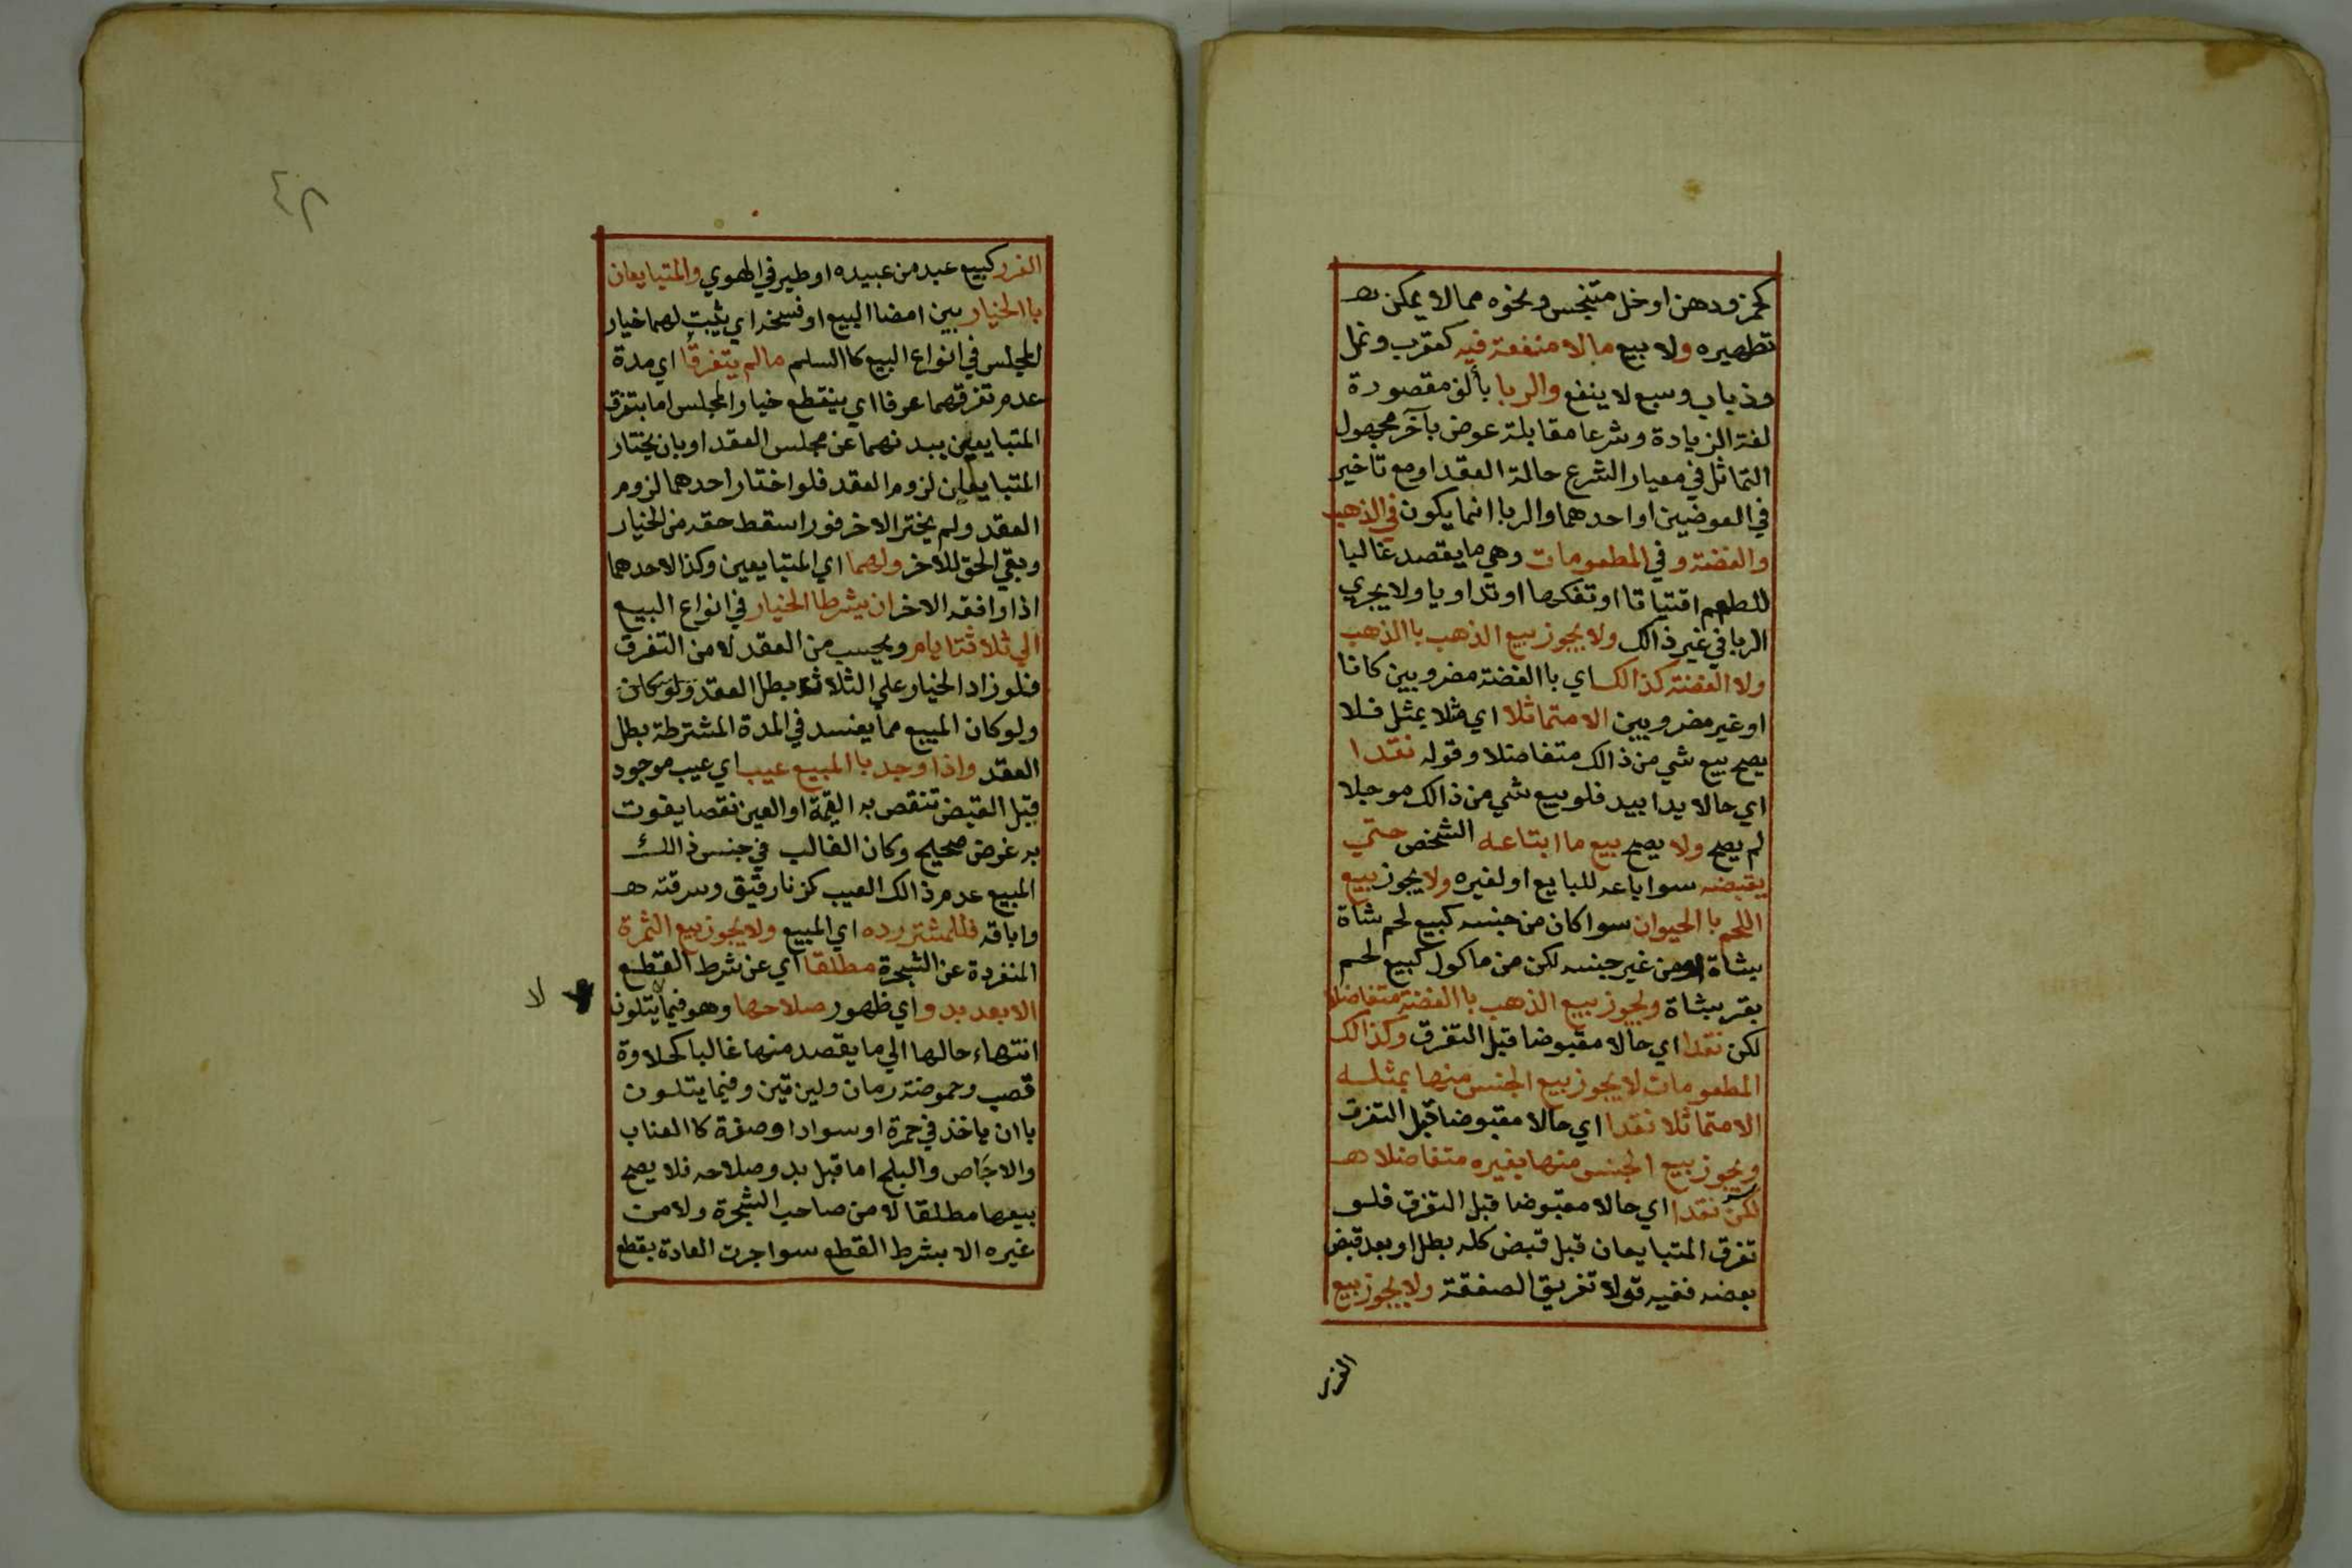 كخمر ودهن او خل متنجس ونحوه مما لا يمكن تط
تطهيره ولا بيع ما لا منفعة فيه كعقرب ونمل
وذباب وسبع لا ينفع والربا بألف مقصورة
لغة الزيادة وشرعا مقابلة عوض بآخر مجهول
التماثل في معيار الشرع حالة العقد او مع تاخير
في العوضين او احدهما والربا انما يكون في الذهب
والفضة و في المطعومات وهي ما يقصد غالبا
للطعم اقتياتا او تفكها او تداويا ولا يجري
الربا في غير ذالك ولا يجوز بيع الذهب باالذهب
ولا الفضة كذالك اي باالفضة مضروبين كانا
او غير مضروبين الا متماثلا اي مثلا بمثل فلا
يصح بيع شي من ذالك متفاضلا وقوله نقدا
اي حالا يدا بيد فلو بيع شي من ذالك موجلا
لم يصح ولا يصح بيع ما ابتاعه الشخص حتي
يقبضه سوا باعه للبايع او لغيره ولا يجوز بيع
اللحم باالحيوان سوا كان من جنسه كبيع لحم شاة
بشاة او من غير جنسه لكن من ماكول كبيع لحم
بقر بشاة ويجوز بيع الذهب باالفضة متفاضلا
لكن نقدا اي حالا مقبوضا قبل التفرق وكذالك
المطعومات لا يجوز بيع الجنس منها بمثله
الا متماثلا نقدا اي حالا مقبوضا قبل التفرق
ويجوز بيع الجنس منها بغيره متفاضلا هـ
لكن نقدا اي حالا مقبوضا قبل التفرق فلو
تفرق المتبايعان قبل قبض كله بطل او بعد قبض
بعضه ففيه قولا تفريق الصفقة ولا يجوز بيع
الغرر
٤٢
الغرر كبيع عبد من عبيده او طير في الهوي والمتبايعان
باالخيار بين امضا البيع او فسخه اي يثبت لهما خيار
المجلس في انواع البيع كاالسلم ما لم يتفرقا اي مدة
عدم تفرقهما عرفا اي ينقطع خيار المجلس اما بتفرق
المتبايعين ببدنهما عن مجلس العقد او بان يختار
المتبايعان لزوم العقد فلو اختار احدهما لزوم
العقد ولم يختر الاخر فورا سقط حقه من الخيار
وبقي الحق للاخر ولهما اي المتبايعين وكذا لاحدهما
اذا وافقه الاخر ان يشرطا الخيار في انواع البيع
الي ثلاثة ايام ويحسب من العقد لا من التفرق
فلو زاد الخيار علي الثلاثة بطل العقد ولو كان
ولو كان المبيع مما يفسد في المدة المشترطة بطل
العقد واذا وجد باالمبيع عيب اي عيب موجود
قبل القبض تنقص به القيمة او العين نقصا يفوت
به غرض صحيح وكان الغالب في جنس ذالك
المبيع عدم ذالك العيب كزنا رقيق وسرقته هـ
واباقه فللمشتر رده اي المبيع ولا يجوز بيع الثمرة
المنفردة عن الشجرة مطلقا اي عن شرط القطع
الا بعد بدو اي ظهور صلاحها وهو فيما يتلون
لا
انتهاء حالها الي ما يقصد منها غالبا كحلاوة
قصب وحموضة رمان ولين تين وفيما يتلون
باان ياخذ في حمرة او سواد او صفرة كاالعناب
والاجاص والبلح اما قبل بدو صلاحه فلا يصح
بيعها مطلقا لا من صاحب الشجرة ولا من
غيره الا بشرط القطع سوا جرت العادة بقطع